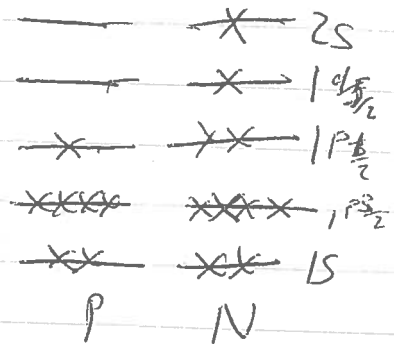 2S
1d5/2
1P1/2
1P3/2
1S
P N